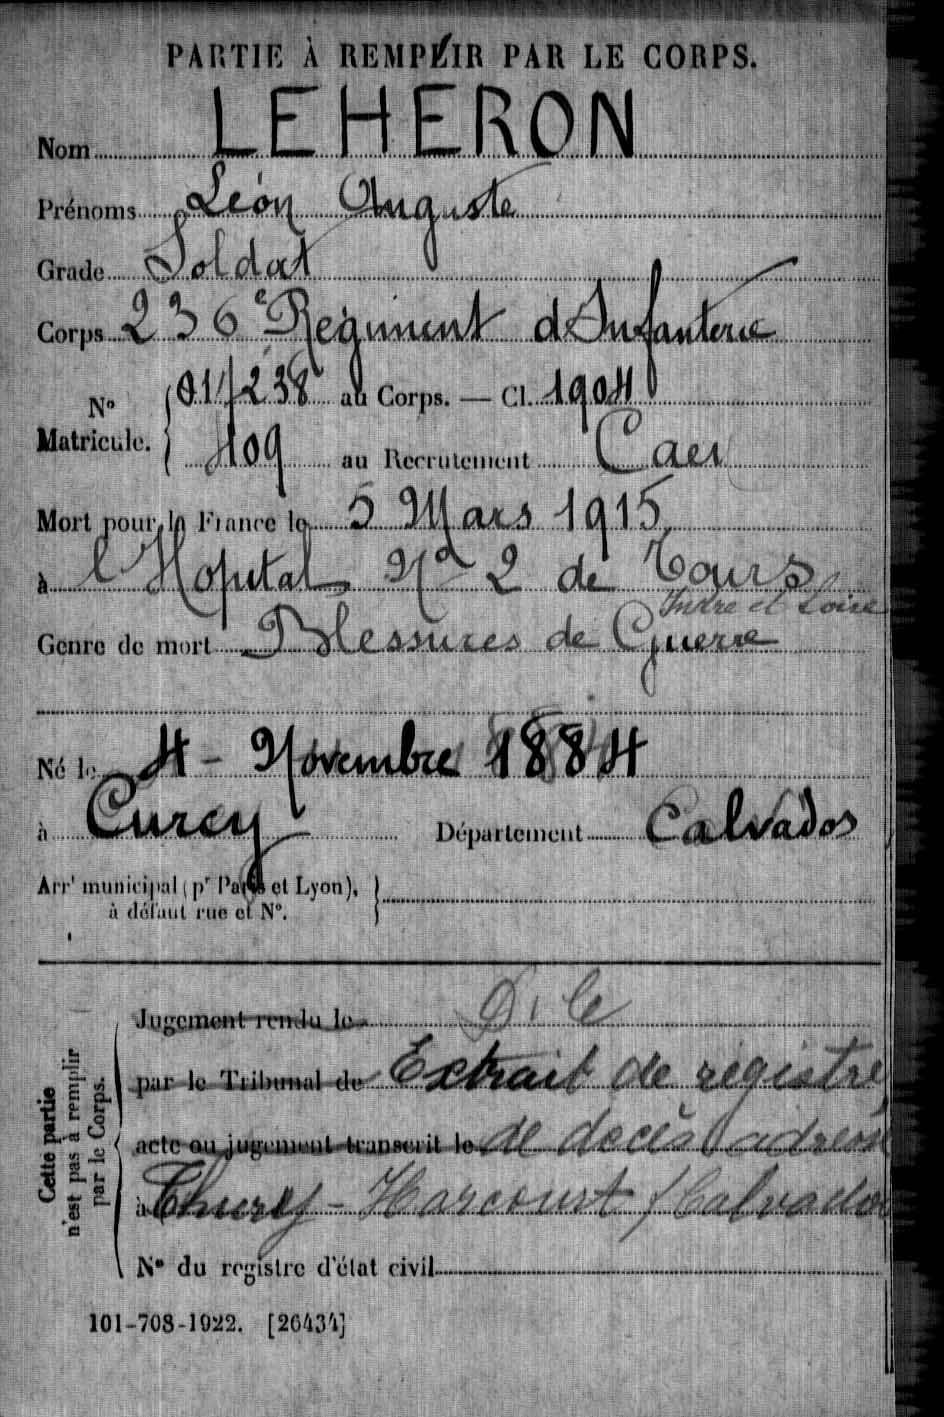 PARTIE À REMPLIR PAR LE CORPS.
Nom LEHERON
Prénoms Léon Auguste
Grade Soldat
Corps 236e Régiment d'Infanterie
N° Matricule. 01/238 au Corps. — Cl. 1904
409 au Recrutement Caen
Mort pour la France le 5 Mars 1915
à l'Hopital No 2 de Tours
Indre et Loire
Genre de mort Blessures de Guerre
Né le 4 - Novembre 1884
à Curcy Département Calvados
Arrt municipal (pr Paris et Lyon),
à défaut rue et N°.
Cette partie n'est pas à remplir par le Corps.
Jugement rendu le
par le Tribunal de Extrait de registre
acte ou jugement transcrit le de décès adressé
à Thury-Harcourt (Calvados
N° du registre d'état civil
101-708-1922. [26434]